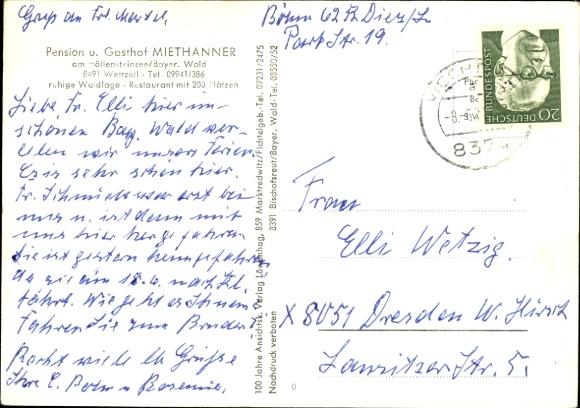 Gruß an Frl. Mertel.
Pension u. Gasthof MIETHANNER
am Höllensteinsee/Bayer. Wald
8491 Wettzell - Tel. 09941/386
ruhige Waldlage - Restaurant mit 200 Plätzen
Liebe Fr. Elli hier im
schönen Bay. Wald ver-
leben wir unsere Ferien.
Es ist sehr schön hier.
Fr. Schmidt war erst bei
uns u. ist dann mit
uns hierher gefahren.
Sie ist gestern heimgefahren
da sie am 18.6. nach
fährt. Wie geht es Ihnen
Fahren Sie zum Bruder?
Recht viele lb Grüße
Ihre E. Böhm u Rosemie.
100 Jahre Ansichtsk. Verlag Löwenhag, 859 Marktredwitz/Fichtelgeb.-Tel. 07231/2475
8391 Bischofsreut/Bayer. Wald-Tel. 08550/52
Nachdruck verboten
0
Böhm 6252 Diez/L
Park Str. 19.
DEUTSCHE BUNDESPOST
20
-8.-6.
837
Frau
Elli Wetzig.
X 8051 Dresden W. Hirsch
Lausitzer Str. 5.